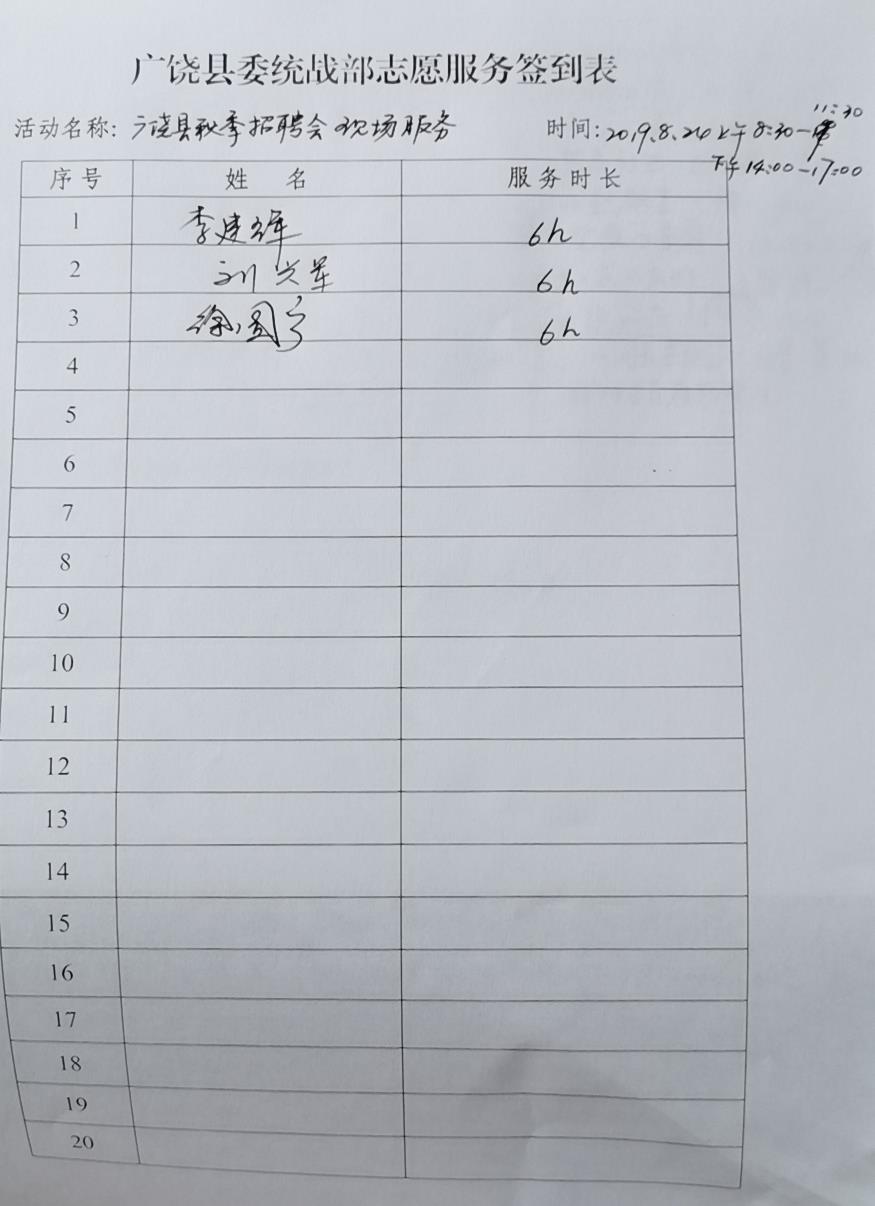 广饶县委统战部志愿服务签到表
活动名称: 广饶县秋季招聘会现场服务 时间: 2019.8.24 上午 8:30-11:30
下午 14:00-17:00
序号 姓 名 服务时长
1 李建 6h
2 刘兴军 6h
3 徐国宁 6h
4
5
6
7
8
9
10
11
12
13
14
15
16
17
18
19
20